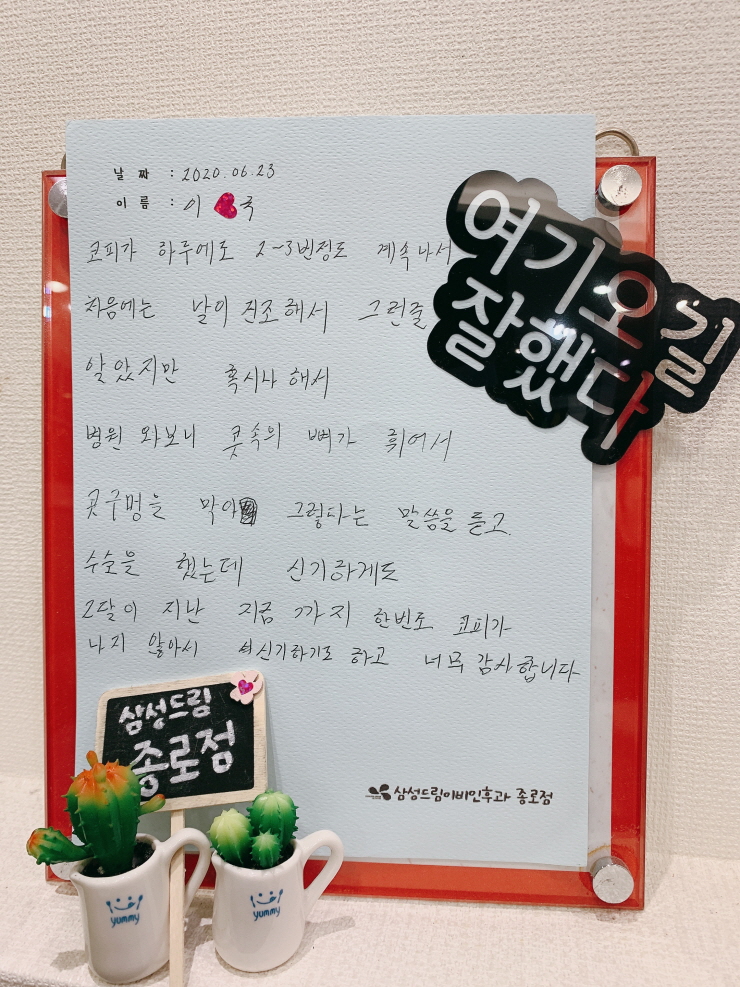 날 짜 : 2020.06.23
이 름 : 이 국
코피가 하루에도 2~3번정도 계속나서
처음에는 날이 건조해서 그런줄
알았지만 혹시나 해서
병원 와보니 콧속의 뼈가 휘어서
콧구멍을 막아 그렇다는 말씀을 듣고.
수술을 했는데 신기하게도
2달이 지난 지금 까지 한번도 코피가
나지 않아서 신기하기도 하고 너무 감사합니다
여기오길
잘했다
삼성드림
종로점
삼성드림이비인후과 종로점
yummy
yummy